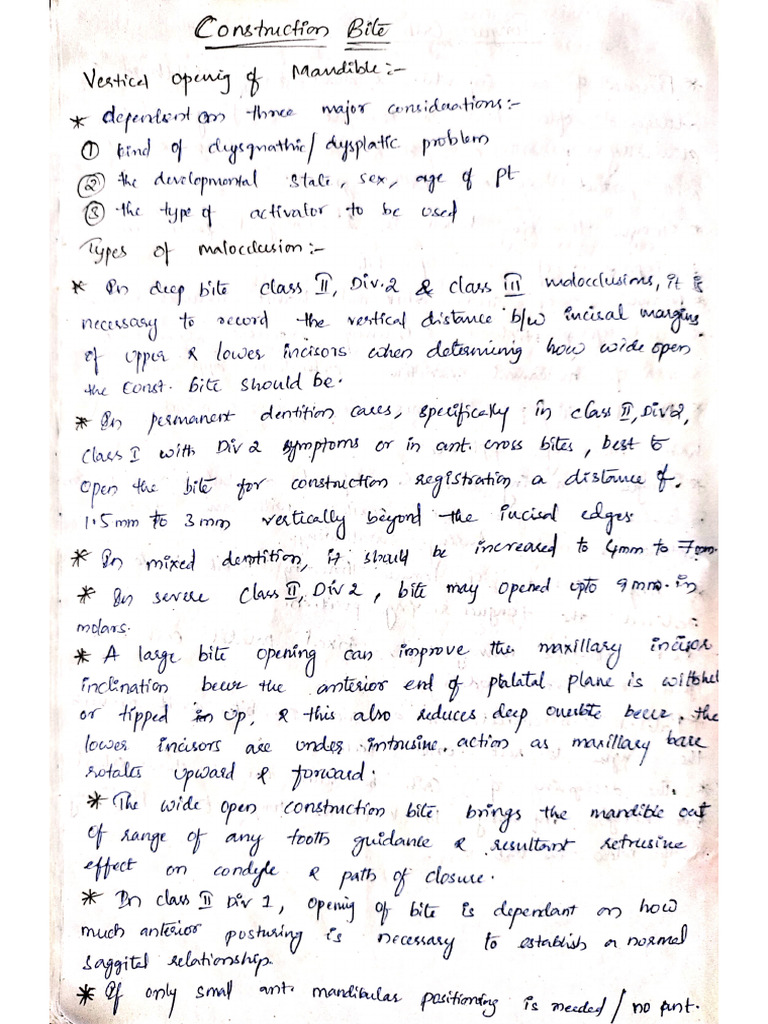 Construction Bite
Vertical Openig of Mandible:-
* dependent on three major considerations:-
① kind of dysgnathic/dysplatic problem
② the developmental state, sex, age of pt
③ the type of activator to be used
Types of malocclusion:-
* In deep bite class II, Div.2 & class III malocclusions, it is
necessary to record the vertical distance b/w incisal margins
of upper & lower incisors when determing how wide open
the const. bite should be.
* In permanent dentition cases, specifically in class II, Div 2,
class I with Div 2 symptoms or in ant. cross bites, best to
open the bite for construction registration a distance of.
1.5mm to 3mm vertically beyond the incisal edges
* In mixed dentition, it should be increased to 4mm to 7mm.
* In severe class II, Div 2, bite may opened upto 9mm. in
molars.
* A large bite opening can improve the maxillary incisor
inclination becuz the anterior end of platatal plane is
or tipped up, & this also reduces deep overbite becuz. the
lower incisors are under intrusive action as maxillary base
rotates upward & forward.
* The wide open construction bite brings the mandible out
of range of any tooth guidance & resultant retrusive
effect on condyle & path of closure.
* In class II Div 1, openig of bite is dependant on how
much anterior posturing is necessary to establish a normal
saggital relationship.
* If only small ant. mandibular positioning is needed/no